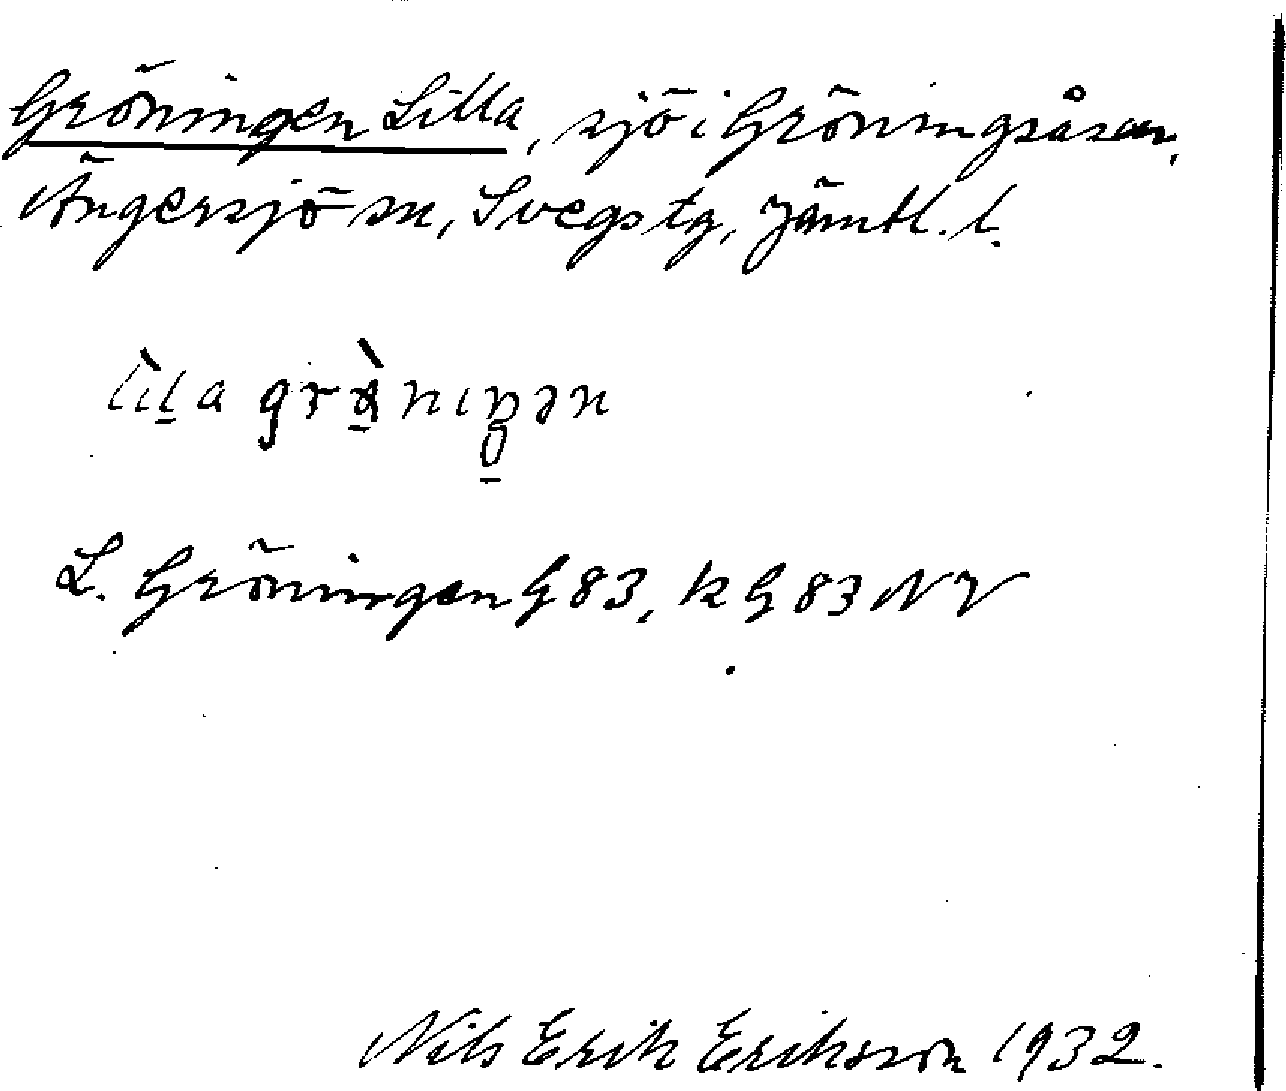 Gröningen Lilla, sjö i Gröningsåsen,
Ängersjö sn, Svegs tg, Jämtl. l.
lìla grö̀niŋən
L. Gröningen G 83, k G 83 NV
Nils Erik Eriksson 1932.